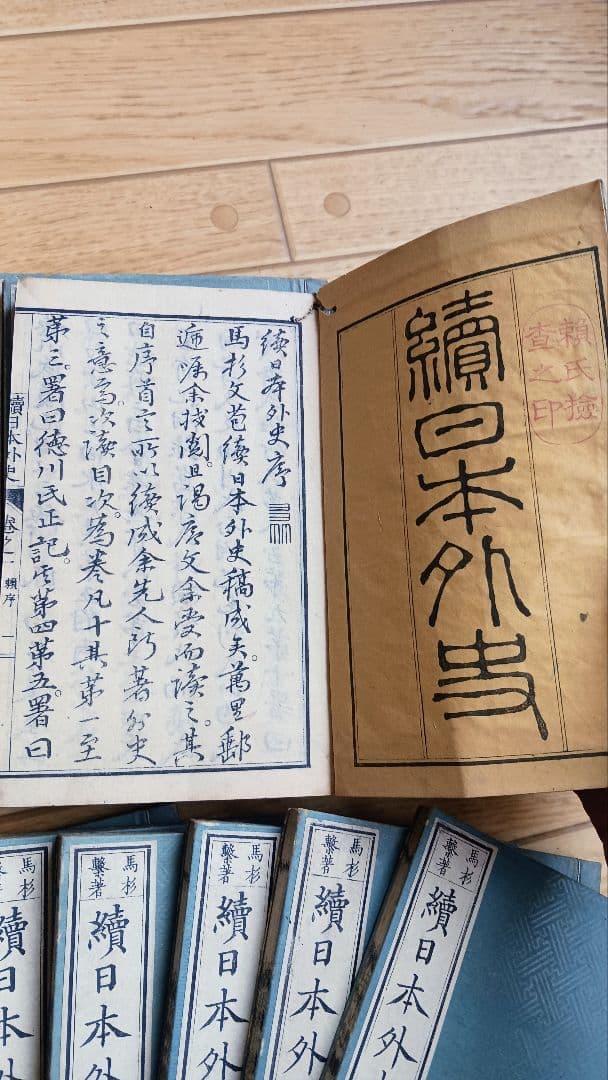 續日本外史
賴氏撿
査之印
續日本外史序
馬杉文苞續日本外史稿成矣萬里郵
逓嘱余校閲。且謁序文余受而讀之。其
自序首言所以續成余先人所著外史
之意焉。次讀目次。為巻凡十其第一至
第三。署曰德川氏正記。云第四第五。署曰
續日本外史
卷之一
賴序
一
馬杉
繋著
續日本外
馬杉
繋著
續日本外
馬杉
繋著
續日本外
馬杉
繋著
續日本外
馬杉
繋著
續日本外